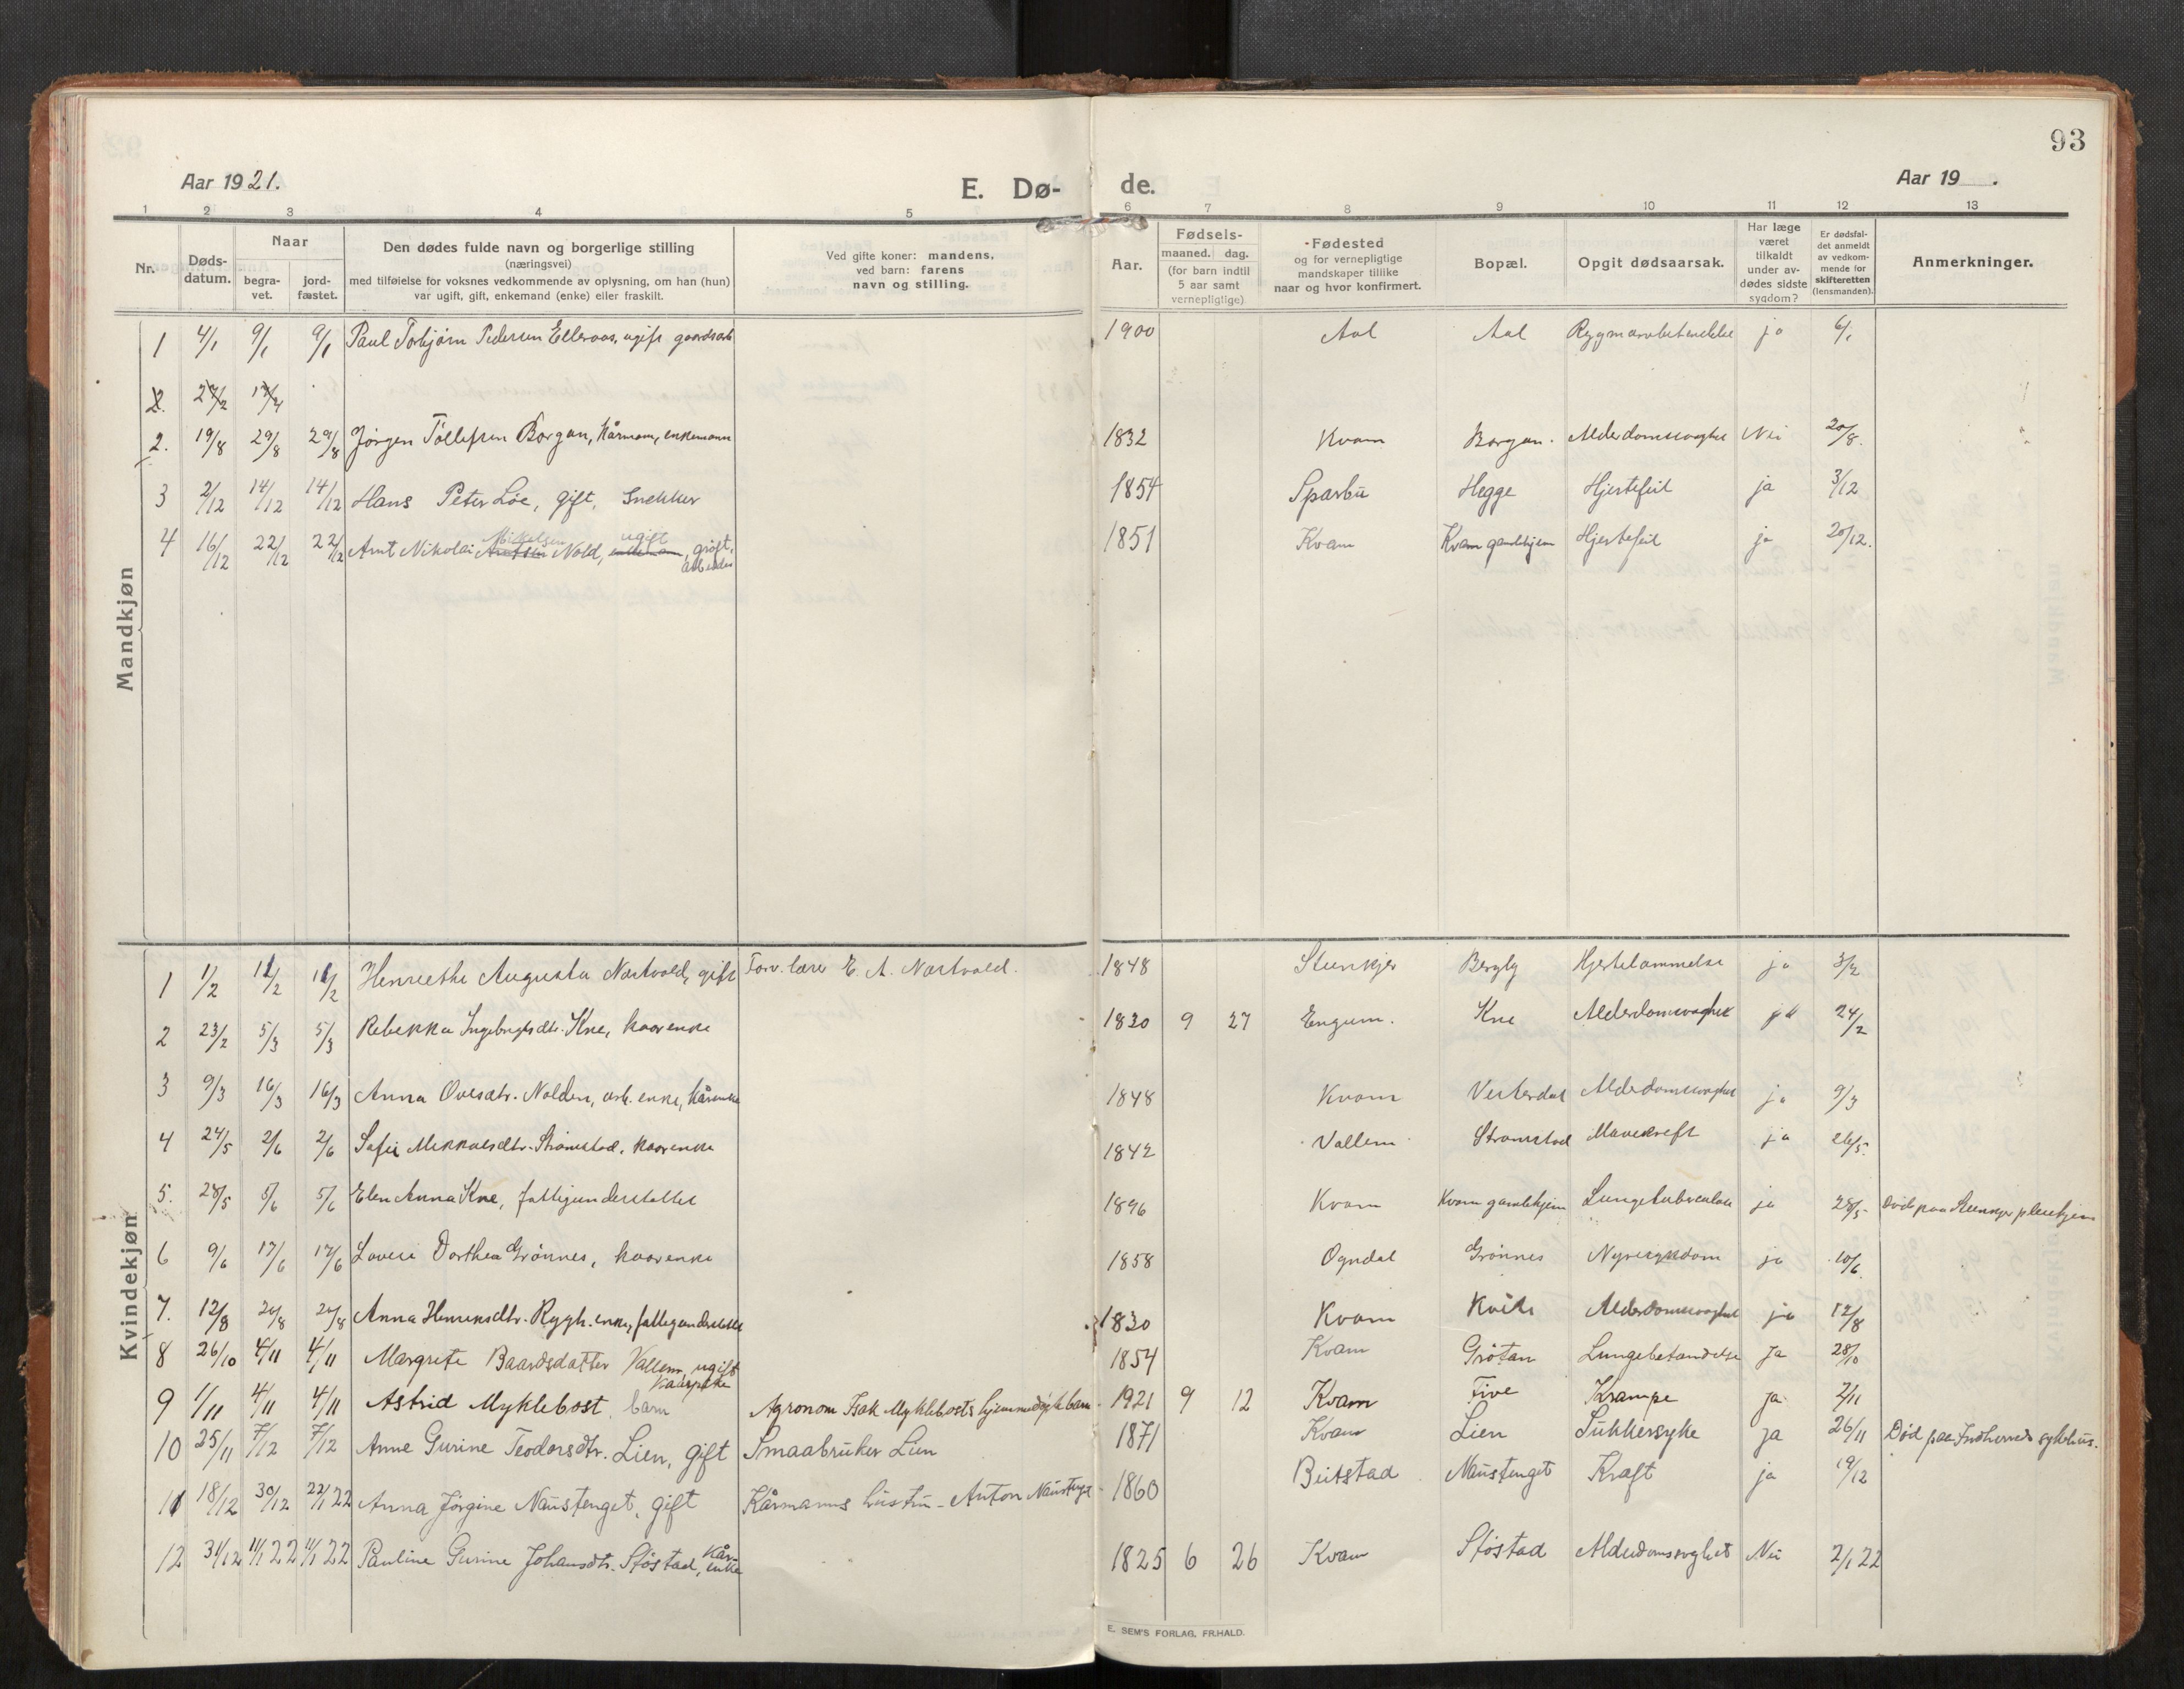 93
Aar 1921.
E. Dø-
de.
Aar 19 .
1 2 3 4 5 6 7 8 9 10 11 12 13
Nr.
Døds-
datum.
Naar
begra-
vet.
jord-
fæstet.
Den dødes fulde navn og borgerlige stilling
(næringsvei)
med tilføielse for voksnes vedkommende av oplysning, om han (hun)
var ugift, gift, enkemand (enke) eller fraskilt.
Ved gifte koner: mandens,
ved barn: farens
navn og stilling.
Aar.
Fødsels-
maaned. dag.
(for barn indtil
5 aar samt
vernepligtige)
Fødested
og for vernepligtige
mandskaper tillike
naar og hvor konfirmert.
Bopæl.
Opgit dødsaarsak.
Har læge
været
tilkaldt
under av-
dødes sidste
sygdom?
Er dødsfal-
det anmeldt
av vedkom-
mende for
skifteretten
(lensmanden).
Anmerkninger.
Mandkjøn
1 4/1 9/1 9/1 Paul Torbjørn Pedersen Elleraas, ugift gaardsarb 1900 Aal Aal ja 6/1
2.
2. 19/8 29/8 29/8 Jørgen Tollefsen Borgan, Kårmann, enkemann 1832 Kvam Borgan. Alderdomssvaghet Nei 20/8.
3 2/12 14/12 14/12 Hans Peter Løe, gift, Snekker 1854 Sparbu Hegge Hjertefeil ja 3/12
Mikelsen ugift
4 16/12 22/12 22/12 Arnt Nikolai Arntsen Nold, enkemann, grøft. 1851 Kvam Kvam gamlehjem Hjertefeil ja 20/12.
arbeider
Kvindekjøn
1 1/2 11/2 11/2 Henriette Augusta Nartvold, gift Forv. lærer E. A. Nartvold. 1848 Steinkjer Bergly Hjertelammelse ja 3/2
2 23/2 5/3 5/3 Rebekka Ingebrigtsdtr. Kne, kaarenke 1830 9 27 Kne Alderdomssvaghet 24/2
3 9/3 16/3 16/3 Anna Ovesdtr. Nolden, arb. enke, kårenke 1848 Kvam Vesterdal Alderdomssvaghet ja 9/3
4 24/5 2/6 2/6 Sofie Mikkalsdtr. Strømstad, kaarenke 1842 Vallem Strømstad Mavekreft ja 26/5.
5. 28/5 5/6 5/6 Elen Anna Kne, fattigunderstøttet 1896 Kvam Kvam gamlehjem Lungetuberkulose ja 28/5 Død paa Steinkjer pleiehjem
6 9/6 17/6 17/6 Lovise Dorthea Grønnes, kaarenke 1858 Ogndal Grønnes Nyresykdom ja 10/6.
7. 12/8 20/8 20/8 Anna Henriksdtr. Rygh. enke, fattigunderstøttet 1830 Kvam Kvils Alderdomssvaghet ja 12/8
8 26/10 4/11 4/11 Margrete Baardsdatter Vallem ugift 1854 Kvam Grøtan Lungebetændelse Ja 28/10
Kaarpike
9 1/11 4/11 4/11 Astrid Myklebost. barn Agronom Isak Myklebosts hjemmedøpte barn 1921 9 12 Kvam Five Krampe ja 2/11
10 25/11 7/12 7/12 Anne Gurine Teodorsdtr. Lien, gift Smaabruker Lien 1871 Kvam Lien Sukkersyke ja 26/11 Død paa Indherreds sykehus.
11 18/12 30/12 22/1 22 Anna Jørgine Naustenget, gift Kårmanns hustru - Anton Naustenget 1860 Beitstad Naustenget Kræft ja 19/12
12 31/12 11/1 22 11/1 22 Pauline Gurine Johansdtr. Sjøstad, Kår- 1825 6 26 Kvam Sjøstad Alderdomssvaghet Nei 2/1 22
enke
E. SEM'S FORLAG, FR.HALD.